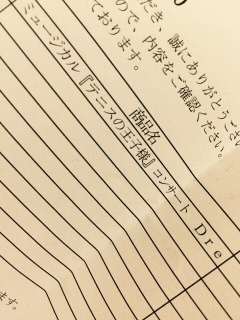 誠にありがとうござい
だき、内容をご確認ください。
ので、
ております。
商品名
ミュージカル『テニスの王子様』コンサート Dre
ます。